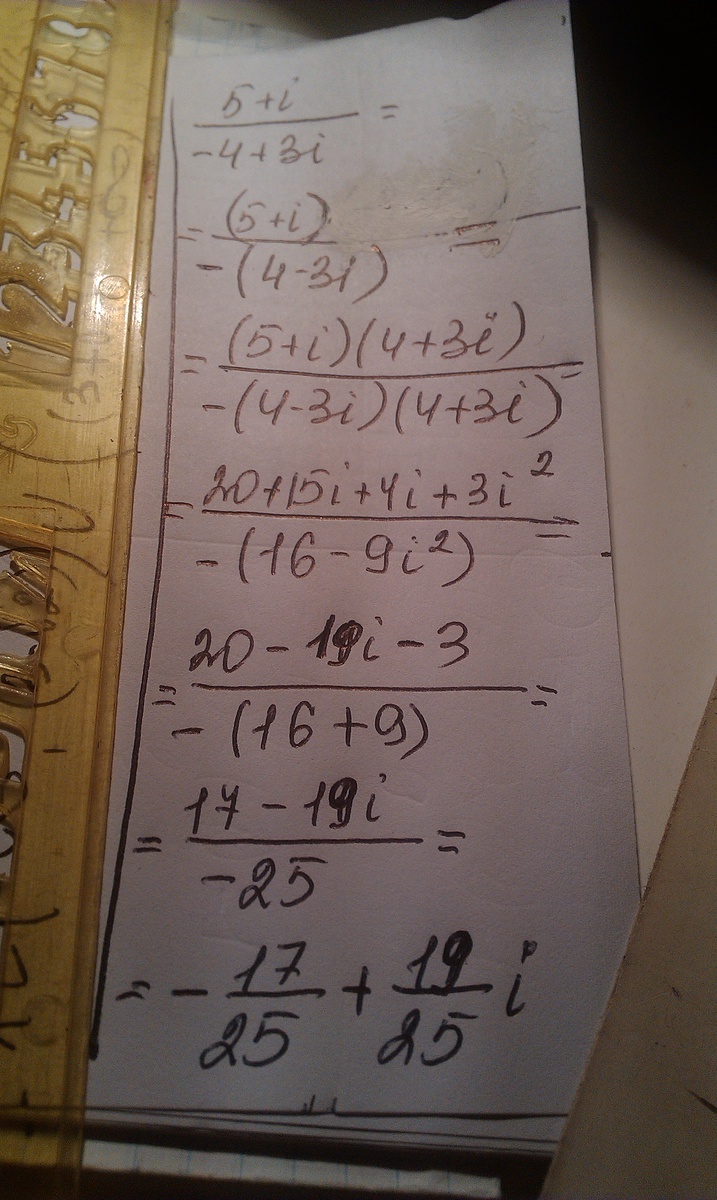 5+i
-4+3i =
= (5+i)
-(4-3i) =
= (5+i)(4+3i)
-(4-3i)(4+3i) =
= 20+15i+4i+3i²
-(16-9i²) =
= 20-19i-3
-(16+9) =
= 17-19i
-25 =
= - 17/25 + 19/25 i